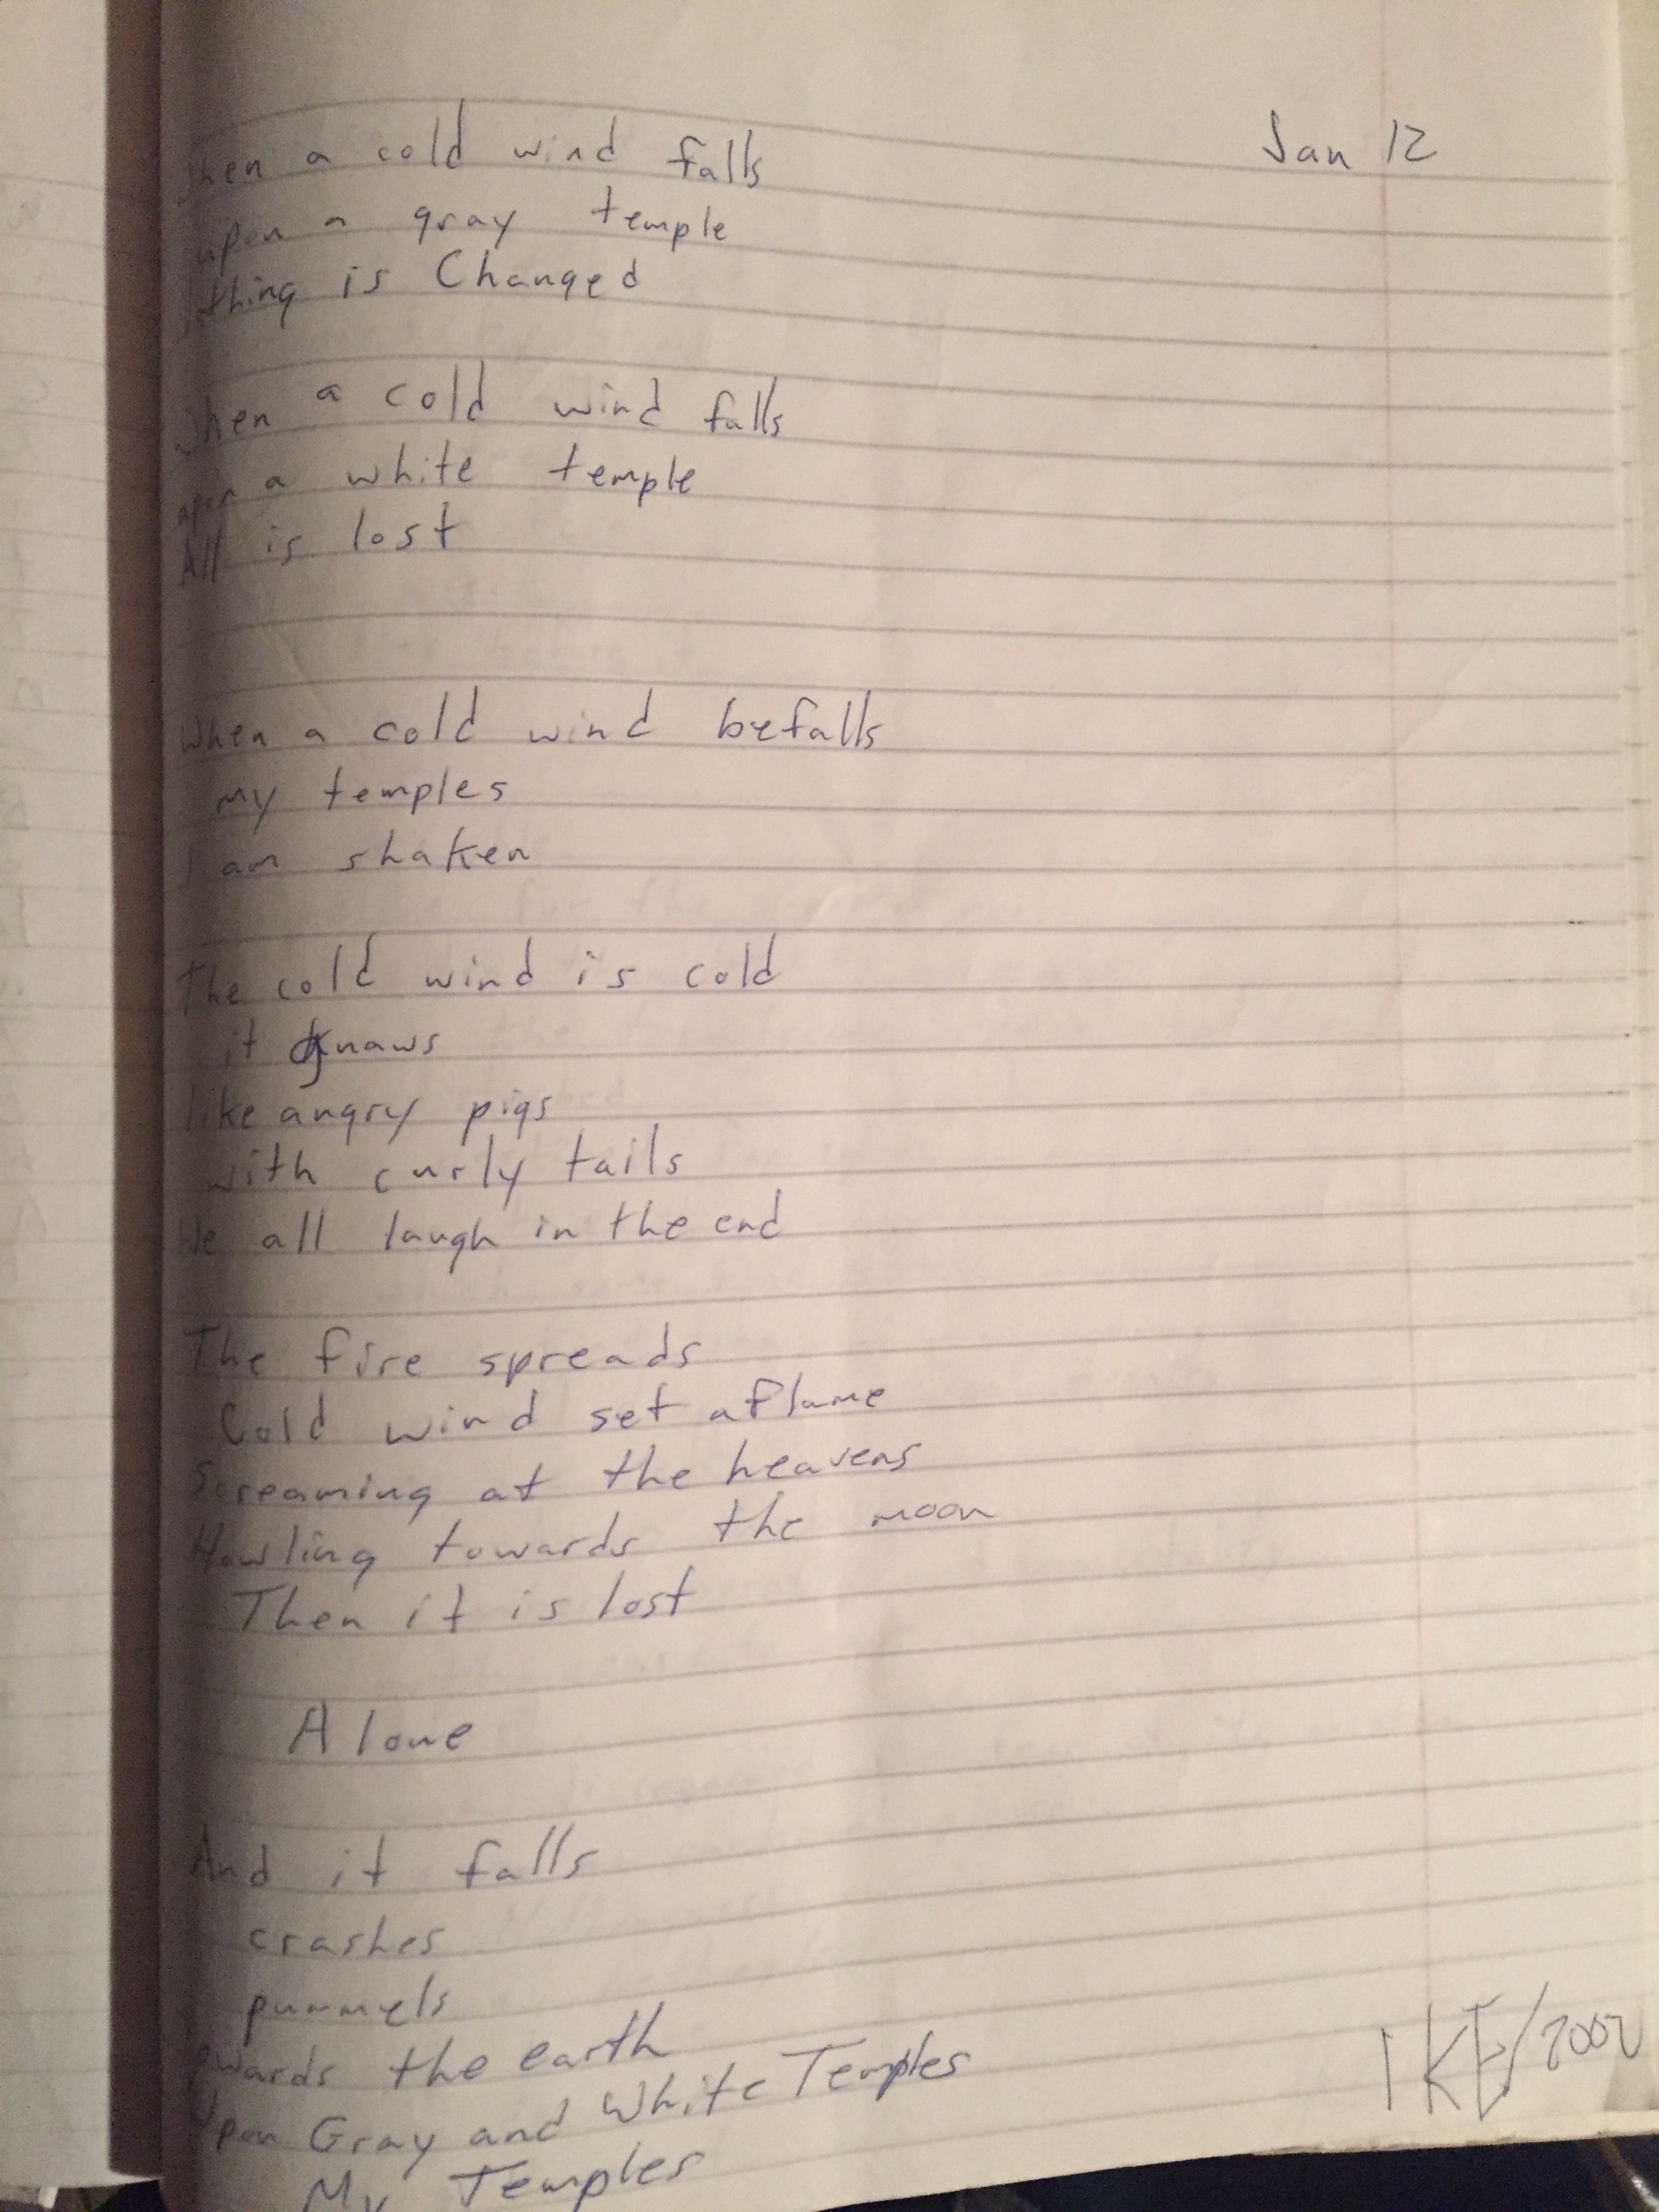 When a cold wind falls
Jan 12
upon a gray temple
thing is Changed
When a cold wind falls
upon a white temple
All is lost
When a cold wind befalls
my temples
I am shaken
The cold wind is cold
it gnaws
like angry pigs
with curly tails
We all laugh in the end
The fire spreads
Cold wind set aflame
Screaming at the heavens
Howling towards the moon
Then it is lost
Alone
And it falls
crashes
pummels
wards the earth
Upon Gray and White Temples
My Temples
IKE/2002